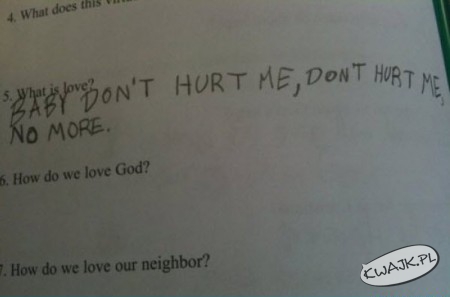 4. What does this
5. What is love?
BABY DON'T HURT ME, DON'T HURT ME,
NO MORE.
6. How do we love God?
7. How do we love our neighbor?
KWAJK.PL